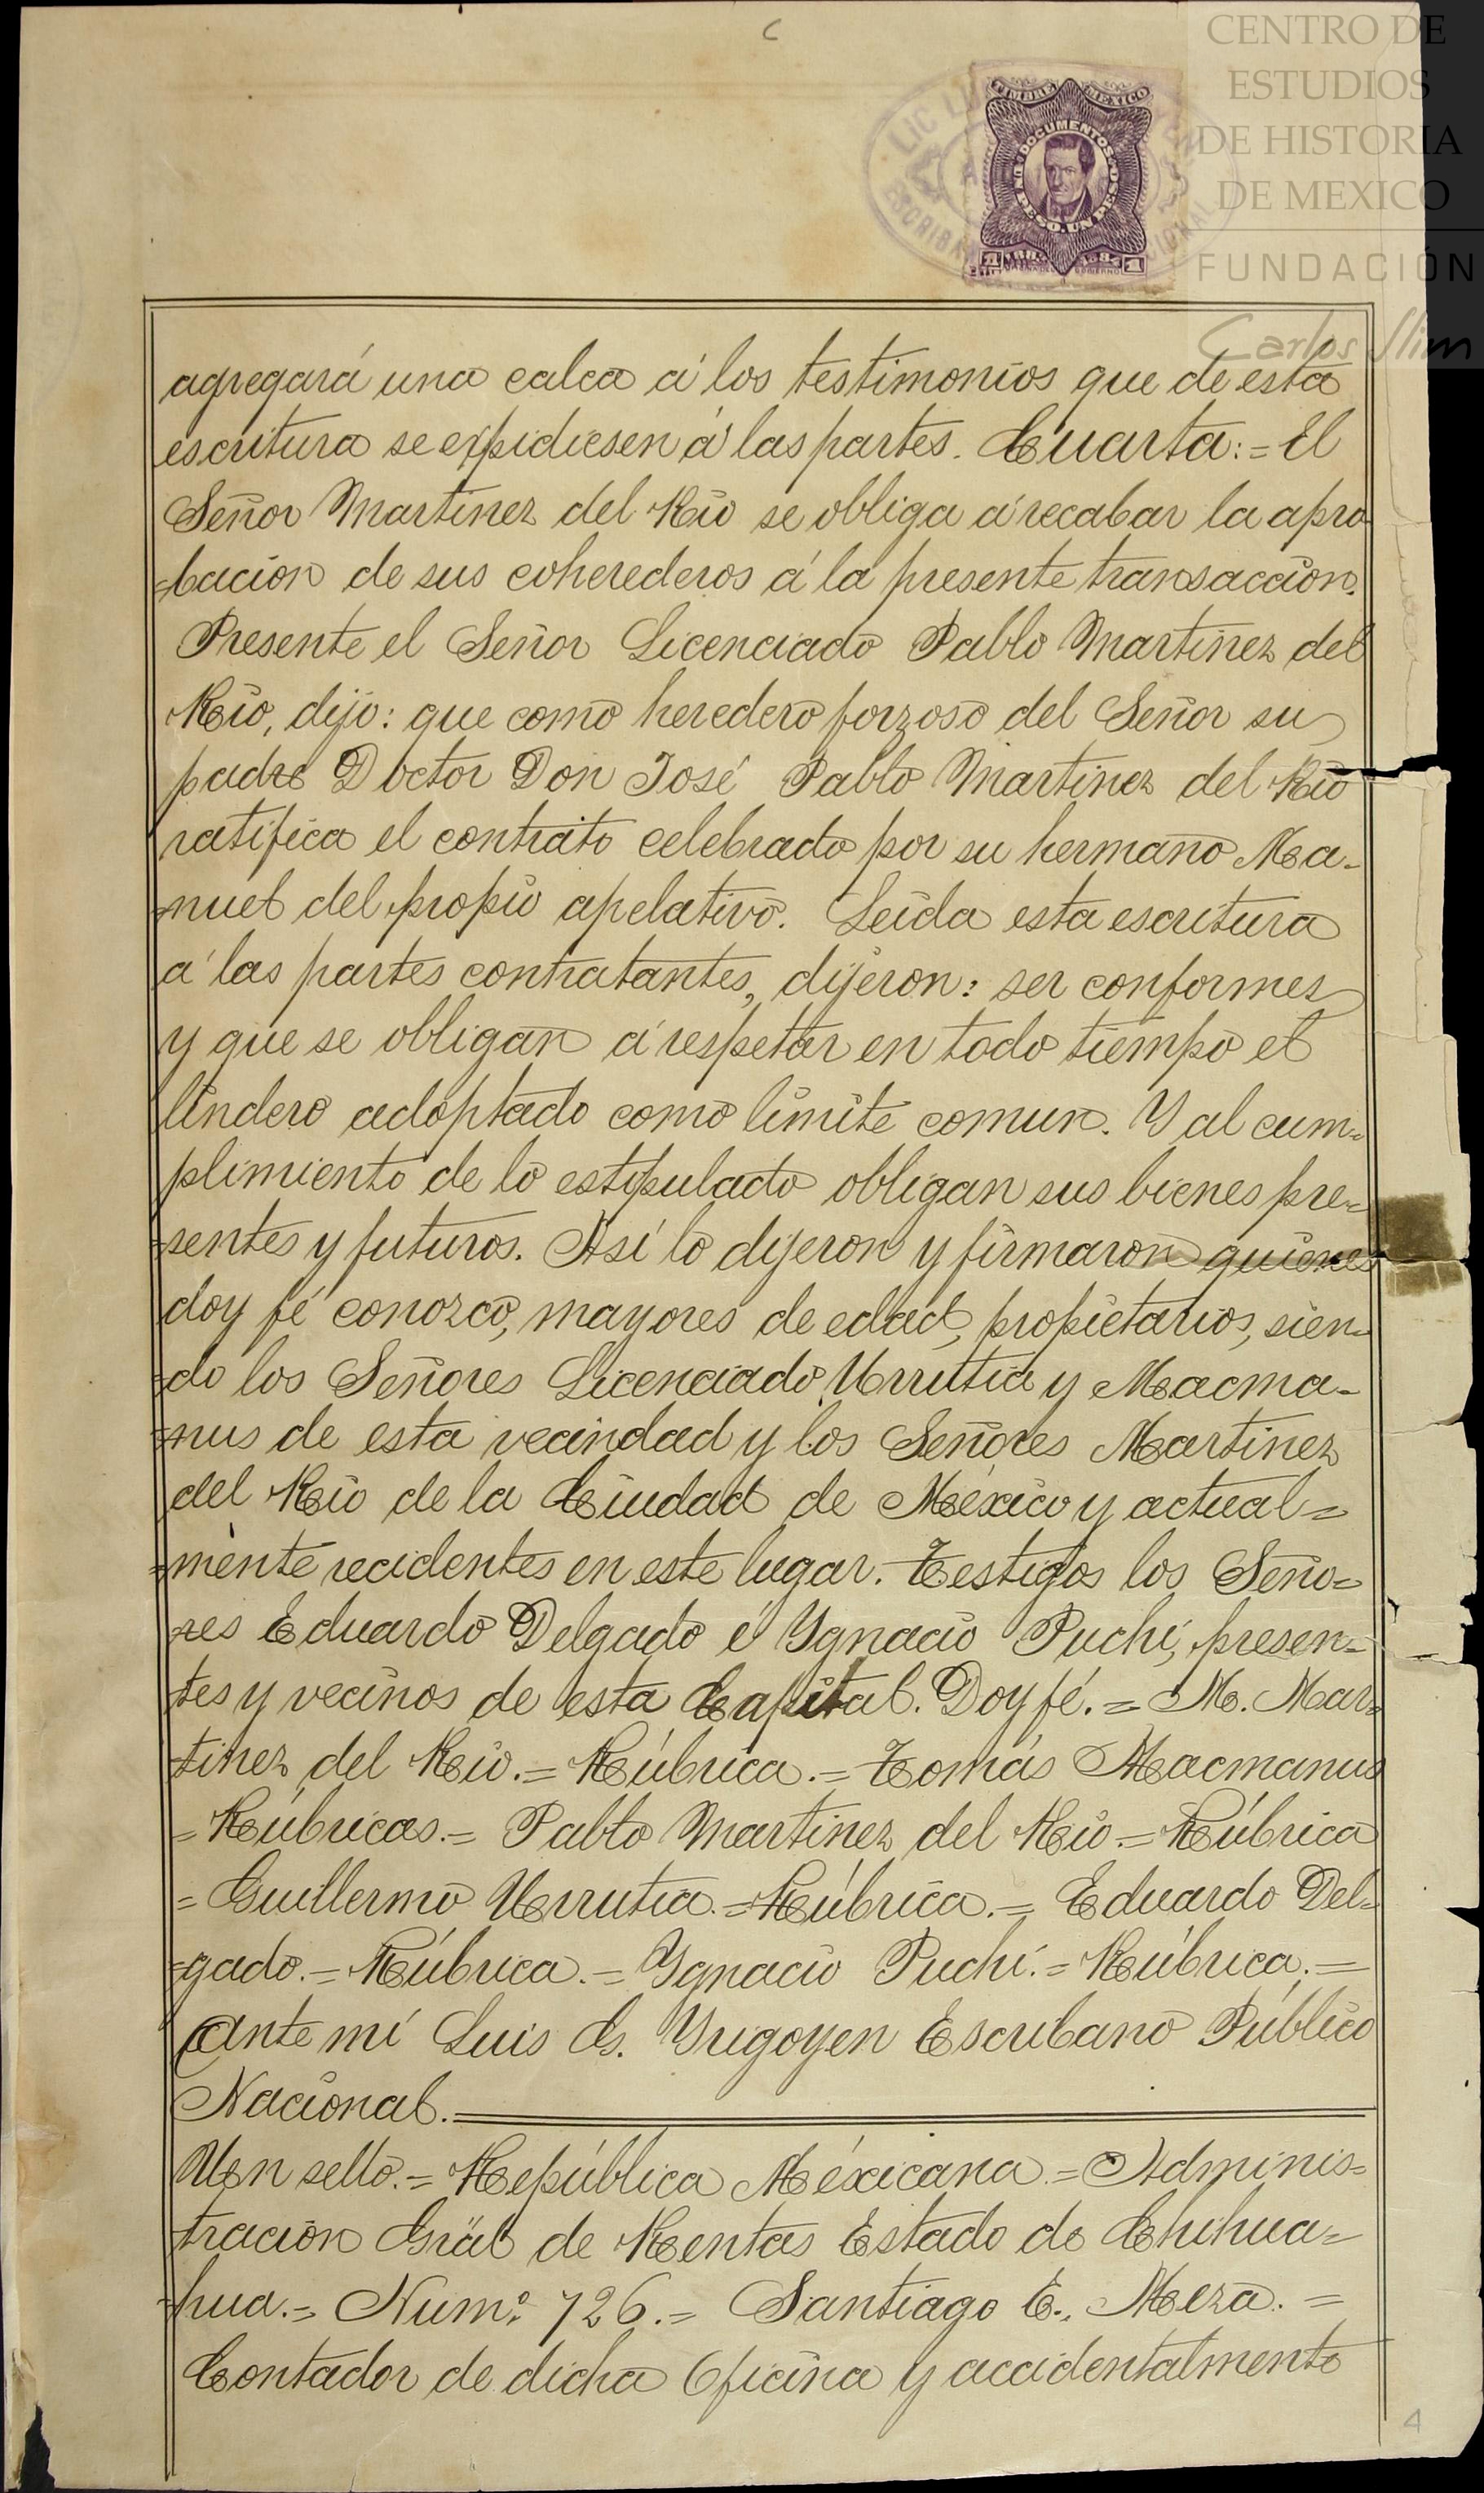 CENTRO DE
ESTUDIOS
DE HISTORIA
DE MEXICO
FUNDACIÓN
Carlos Slim
TIMBRE MEXICO
DOCUMENTOS
UN PESO. UN PESO
agregará una calca á los testimonios que de esta
escritura se expidiesen á las partes. Cuarta:= El
Señor Martinez del Rio se obliga á recabar la apro
=bacion de sus coherederos á la presente transaccion.
Presente el Señor Licenciado Pablo Martinez del
Rio, dijo: que como heredero forzoso del Señor su
padre Doctor Don José Pablo Martinez del Rio
ratifica el contrato celebrado por su hermano Ma-
=nuel del propio apelativo. Leida esta escritura
á las partes contratantes, dijeron: ser conformes
y que se obligan á respetar en todo tiempo el
lindero adoptado como limite comun. Y al cum=
plimiento de lo estipulado obligan sus bienes pre=
=sentes y futuros. Así lo dijeron y firmaron quienes
doy fé conozco, mayores de edad, propietarios, sien=
=do los Señores Licenciado Urrutia y Macma-
=nus de esta vecindad y los Señores Martinez
del Rio de la Ciudad de México y actual=
=mente recidentes en este lugar. Testigos los Seño=
res Eduardo Delgado é Ygnacio Puchi, presen=
tes y vecinos de esta Capital. Doy fé.= M. Mar=
tinez del Rio.= Rúbrica.= Tomás Macmanus
= Rúbricas.= Pablo Martinez del Rio.= Rúbrica
= Guillermo Urrutia.= Rúbrica.= Eduardo Del=
=gado.= Rúbrica.= Ygnacio Puchi.= Rúbrica.=
Ante mí Luis G. Yrigoyen Escribano Público
Nacional.
Un sello.= República Méxicana.= Adminis=
tracion Gral de Rentas Estado de Chihua=
=hua.= Num.º 726.= Santiago E. Meza.=
Contador de dicha Oficina y accidentalmente
4